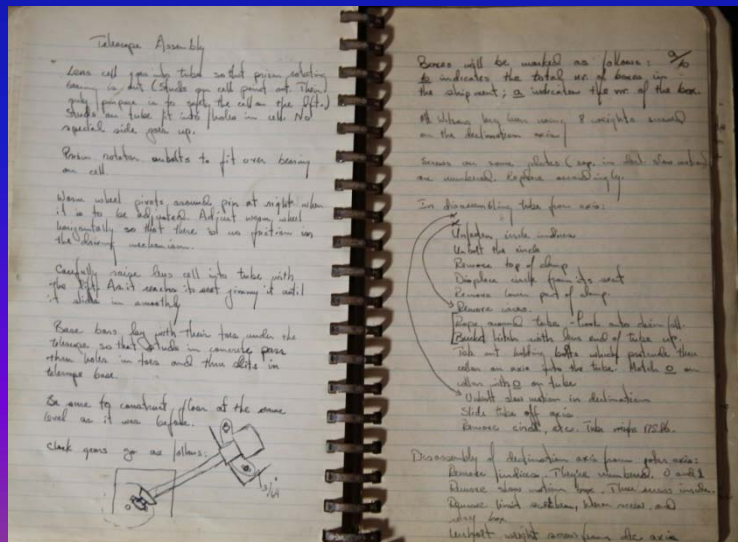 Telescope Assembly
Lens cell goes into tube so that prism rotating
bearing is out (Studs on cell point out. Their
only purpose is to safety the cell on the lift.)
Studs on tube fit into holes in cell. No
special side goes up.
Prism rotator unbolts to fit over bearing
on cell.
Worm wheel pivots around pin at right when
it is to be adjusted. Adjust worm wheel
horizontally so that there is no friction in
the driving mechanism.
Carefully raise lens cell into tube with
the lift. As it reaches its seat jimmy it until
it slides in smoothly
Base bars lay with their toes under the
telescope so that studs in concrete pass
thru holes in toes and thru slits in
telescope base.
Be sure to construct floor at the same
level as it was before.
Clock gears go as follows:
Boxes will be marked as follows: a/b
b indicates the total nr. of boxes in
the shipment; a indicates the nr. of the box.
on the declination axis
Screws on some plates (esp. in decl. slow motion)
are numbered. Replace accordingly.
In disassembling tube from axis:
Unfasten circle indices
Unbolt the circle
Remove top of clamp
Displace circle from its seat
Remove lower part of clamp.
Remove wires.
Rope around tube - hook onto chain fall.
Basket hitch with lens end of tube up.
Take out holding bolts which protrude thru
collar on axis into the tube. Match 0 on
collar with 0 on tube
Unbolt slow motion in declination
Slide tube off axis
Remove circle, etc.
Disassembly of declination axis from polar axis:
Remove indices. They're numbered. 0 and 1
Remove slow motion
box
axis